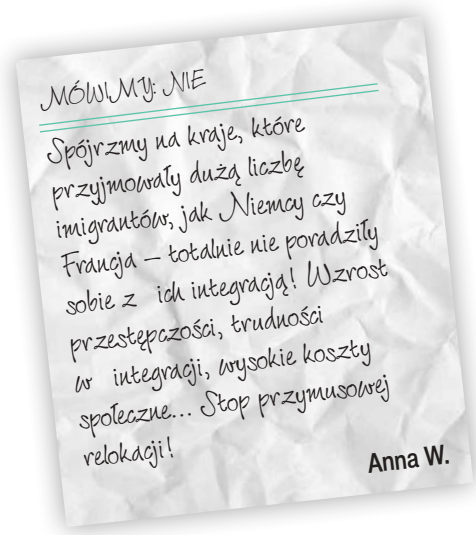 MÓWIMY: NIE
Spójrzmy na kraje, które
przyjmowały dużą liczbę
imigrantów, jak Niemcy czy
Francja – totalnie nie poradziły
sobie z ich integracją! Wzrost
przestępczości, trudności
w integracji, wysokie koszty
społeczne... Stop przymusowej
relokacji!
Anna W.